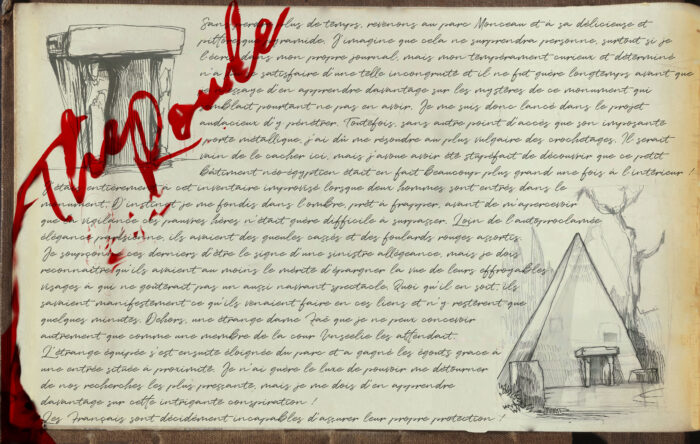 Sans plus de temps, revenons au parc Monceau et à sa délicieuse et
pyramide. J'imagine que cela ne surprendra personne, surtout si je
dans mon propre journal, mais mon tempérament curieux et déterminé
n'a satisfaire d'une telle incongruité et il ne fut guère longtemps avant que
d'en apprendre davantage sur les mystères de ce monument qui
pourtant ne pas en avoir. Je me suis donc lancé dans le projet
audacieux d'y pénétrer. Toutefois, sans autre point d'accès que son imposante
porte métallique, j'ai dû me résoudre au plus vulgaire des crochetages. Il serait
vain de le cacher ici, mais j'avoue avoir été stupéfait de découvrir que ce petit
bâtiment néo-égyptien était en fait beaucoup plus grand une fois à l'intérieur !
J'étais entièrement à cet inventaire improvisé lorsque deux hommes sont entrés dans le
monument. D'instinct je me fondis dans l'ombre, prêt à frapper, avant de m'apercevoir
que la vigilance de ces pauvres hères n'était guère difficile à surpasser. Loin de l'autoproclamée
élégance parisienne, ils avaient des gueules cassés et des foulards rouges assortis.
Je soupçonne ces derniers d'être le signe d'une sinistre allégeance, mais je dois
reconnaître qu'ils avaient au moins le mérite d'épargner la vue de leurs effroyables
visages à qui ne goûterait pas un aussi navrant spectacle. Quoi qu'il en soit, ils
savaient manifestement ce qu'ils venaient faire en ces lieus et n'y restèrent que
quelques minutes. Dehors, une étrange dame Faë que je ne peux concevoir
autrement que comme une membre de la cour Unseelie les attendait.
L'étrange équipée s'est ensuite éloignée du parc et a gagné les égouts grâce à
une entrée située à proximité. Je n'ai guère le luxe de pouvoir me détourner
de nos recherches les plus pressante, mais je me dois d'en apprendre
davantage sur cette intrigante conspiration !
Les Français sont décidément incapables d'assurer leur propre protection !
The Roule